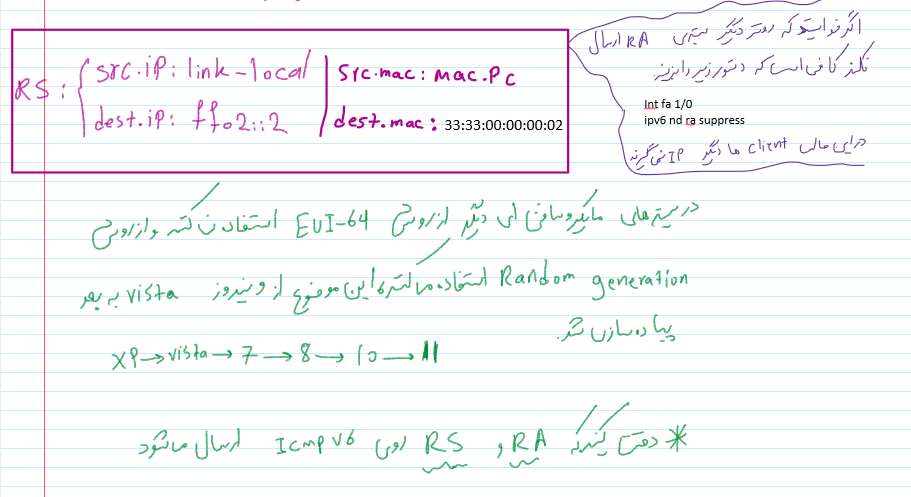 RS:
src.iP: link-local
dest.iP: ff02::2
Src.mac: mac.Pc
dest.mac: 33:33:00:00:00:02
اگر خواستید که روتر دیگر بسته‌ی RA ارسال
نکند کافی است که دستور زیر را بزنید
Int fa 1/0
ipv6 nd ra suppress
در این حالت client ها دیگر IP نمی‌گیرند
در سیستم‌های مایکروسافتی دیگر از روش EUI-64 استفاده نمی‌کند و از روش
Random generation استفاده می‌کند و این موضوع از ویندوز vista به بعد
پیاده‌سازی شد.
XP→vista→7→8→10→11
* دقت کنید که RA و RS روی Icmp V6 ارسال می‌شود